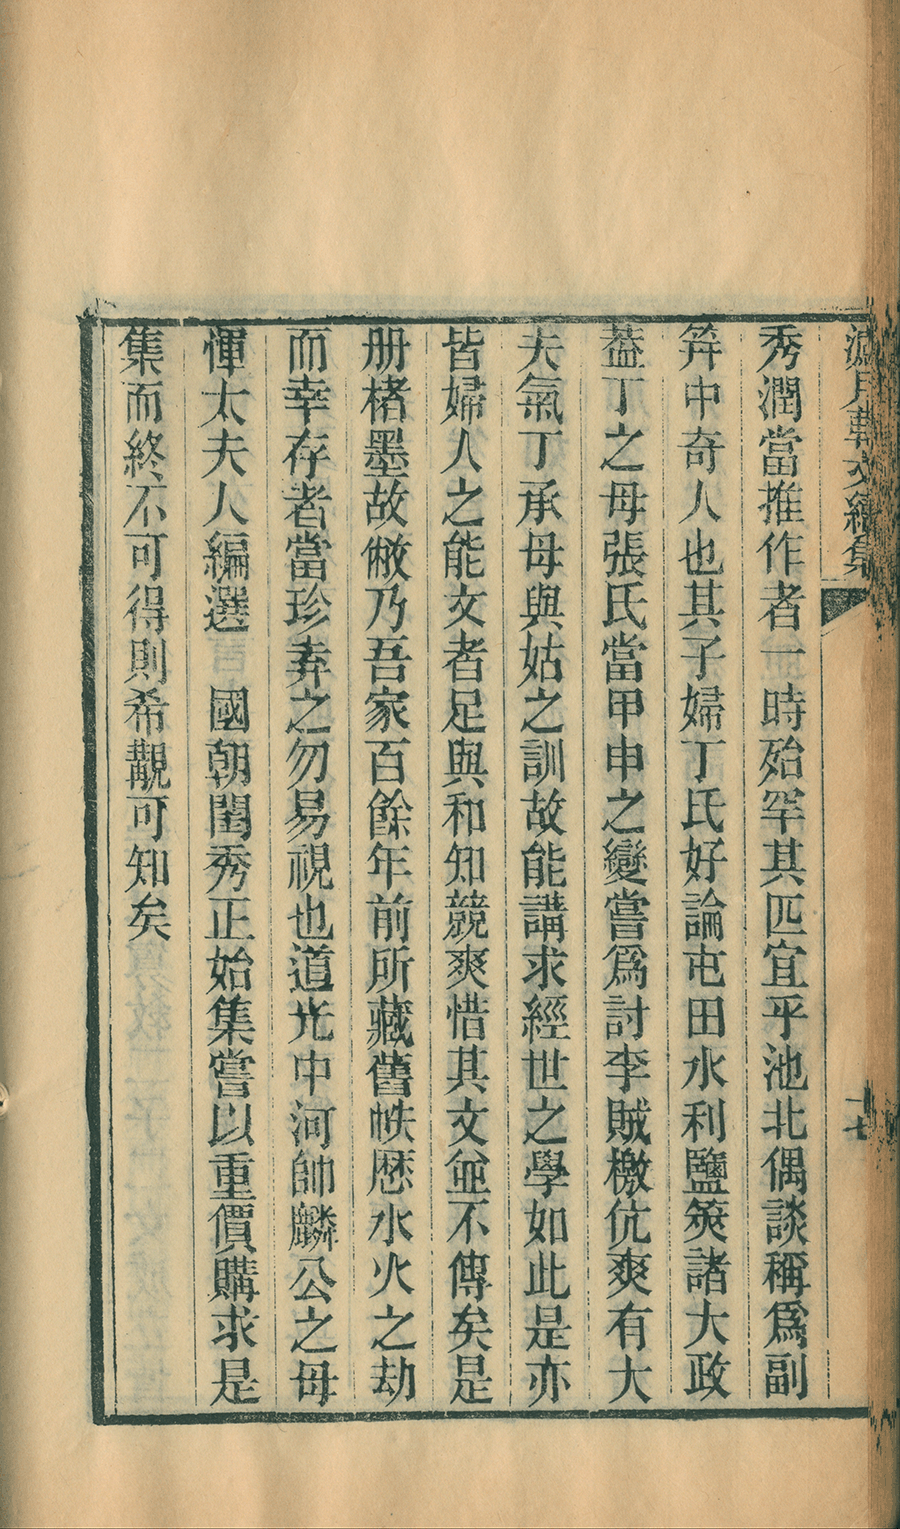 濾月軒文續集 十七
秀潤當推作者一時殆罕其匹宜乎池北偶談稱爲副
笄中奇人也其子婦丁氏好論屯田水利鹽筴諸大政
葢丁之母張氏當甲申之變嘗爲討李賊檄伉爽有大
夫氣丁承母與姑之訓故能講求經世之學如此是亦
皆婦人之能文者足與和知競爽惜其文並不傳矣是
册楮墨故敝乃吾家百餘年前所藏舊帙厯水火之劫
而幸存者當珍弆之勿易視也道光中河帥麟公之母
惲太夫人編選　國朝閨秀正始集嘗以重價購求是
集而終不可得則希覯可知矣